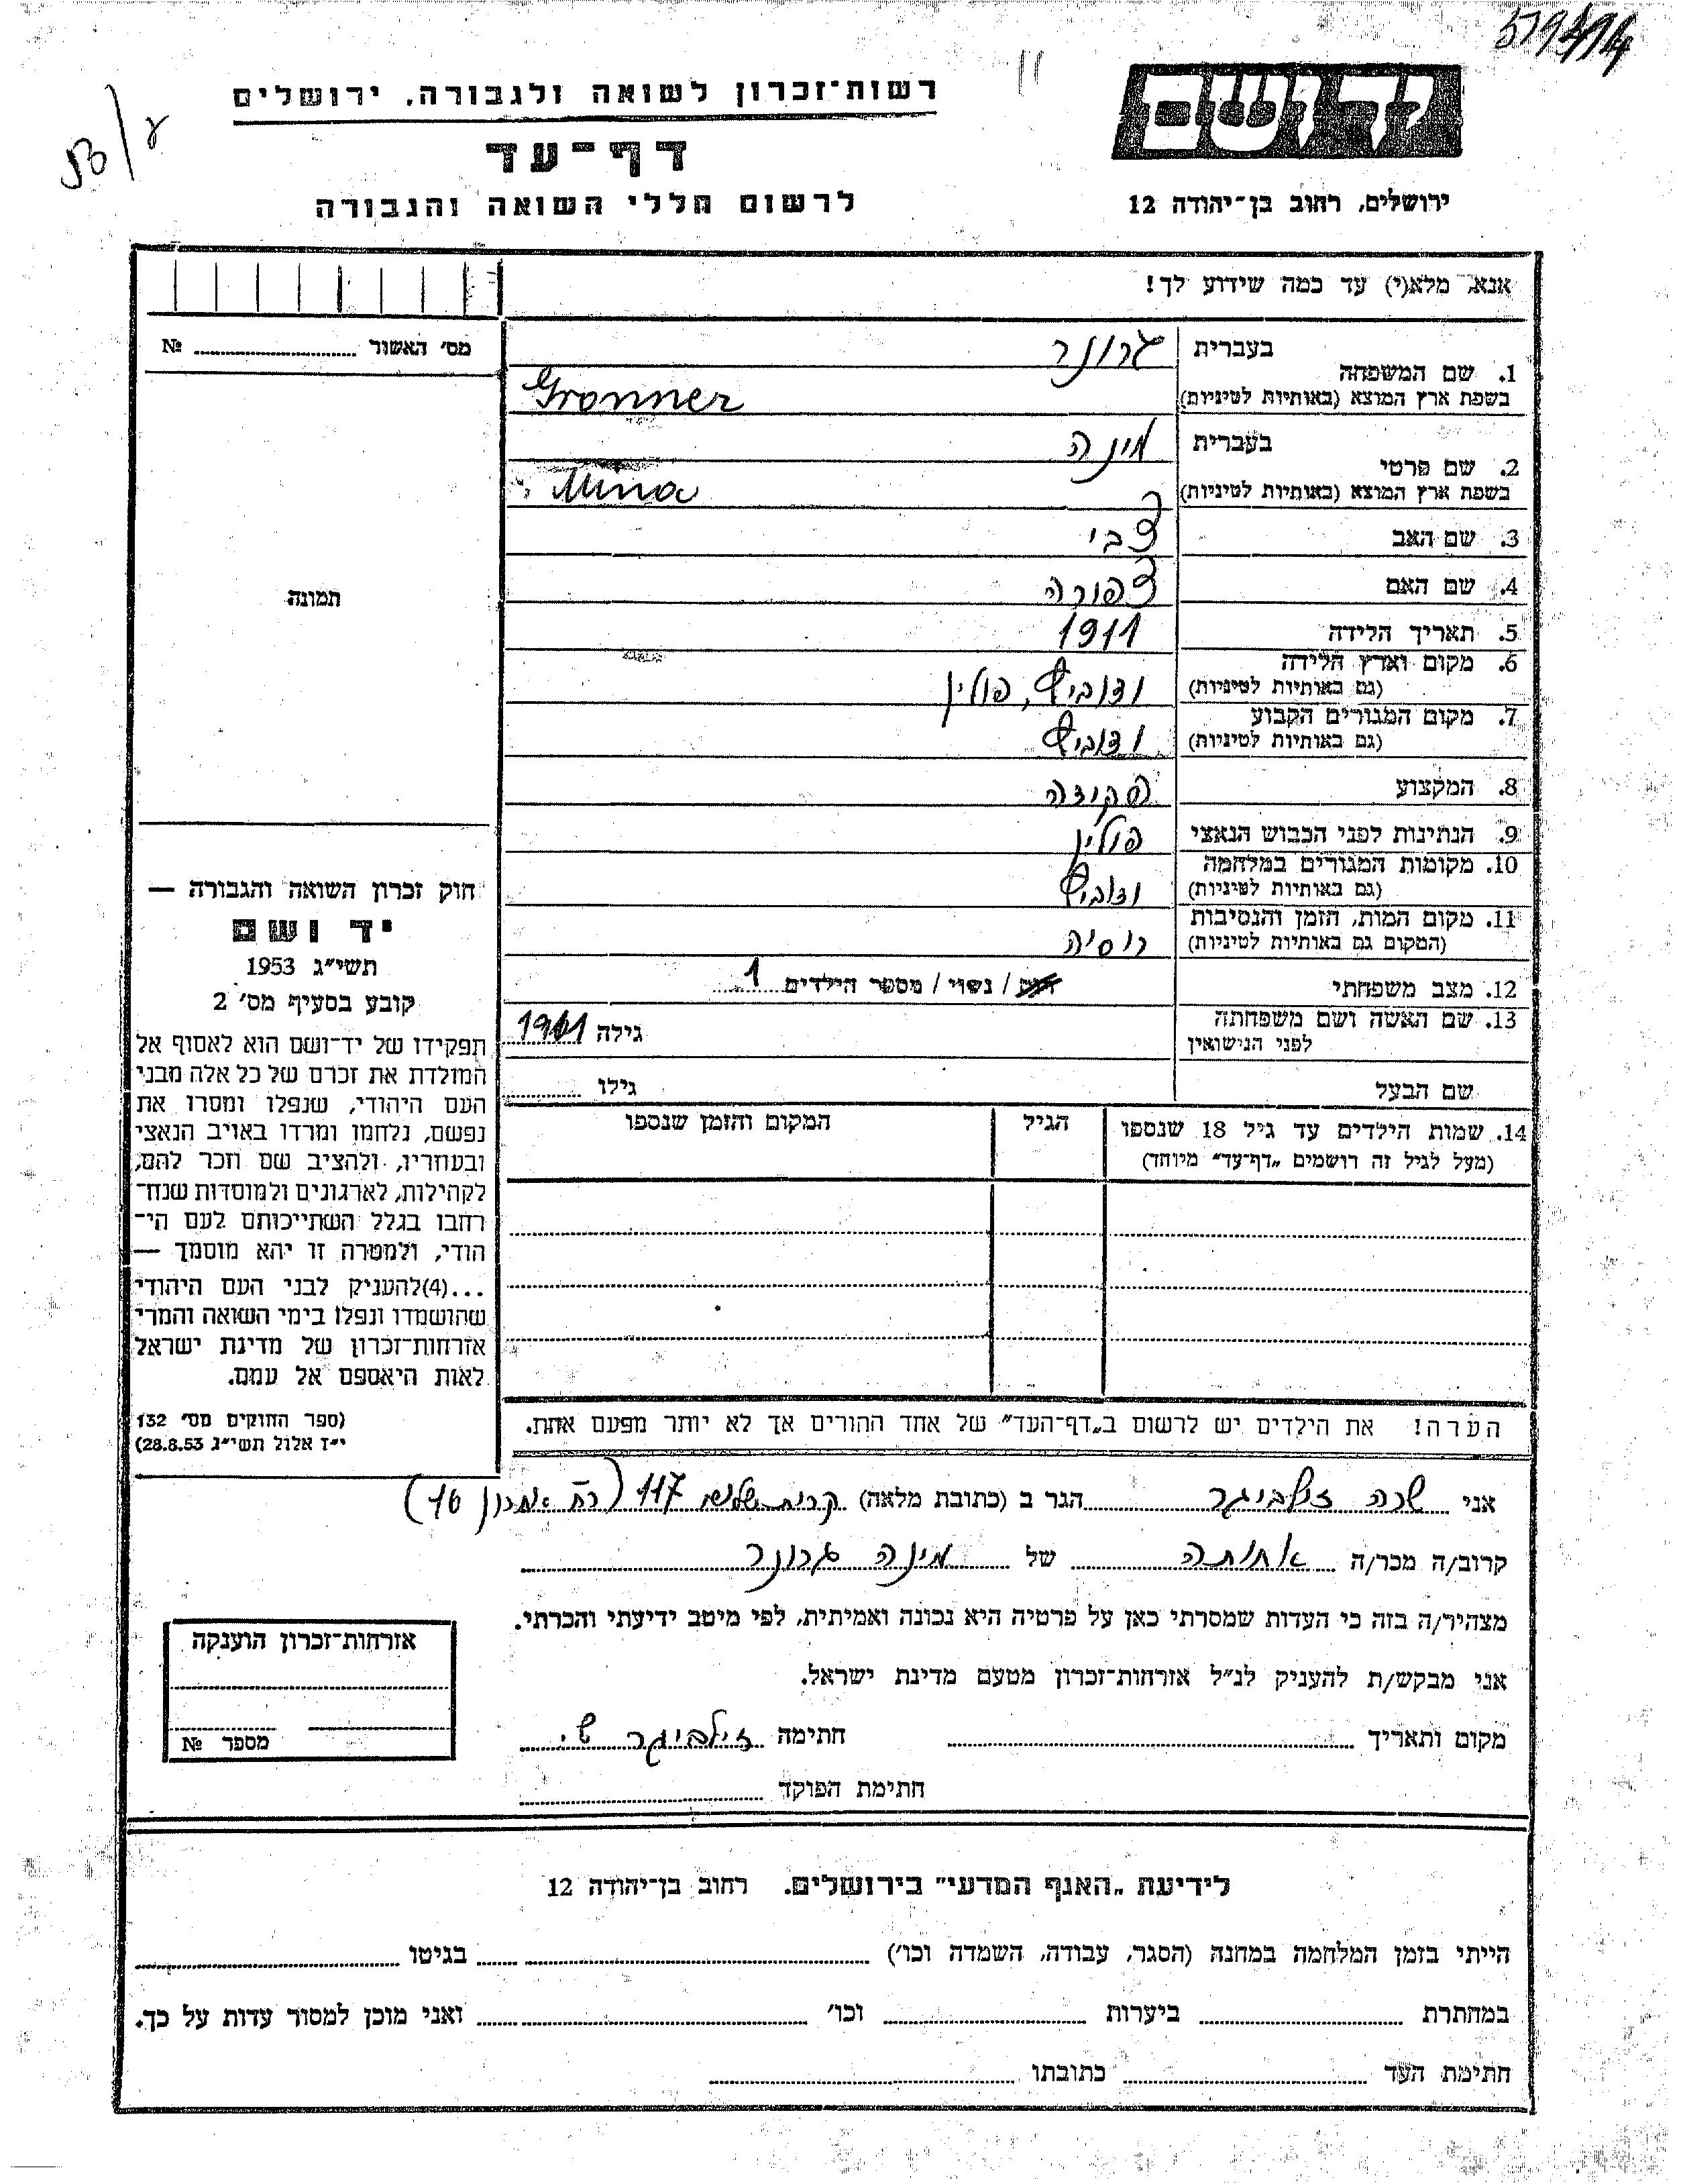 רשות־זכרון לשואה ולגבורה, ירושלים
דף־עד
לרשום חללי השואה והגבורה
יד ושם
ירושלים, רחוב בן־יהודה 12
אנא, מלא(י) עד כמה שידוע לך!
מס׳ האשור № ........
תמונה
חוק זכרון השואה והגבורה —
יד ושם
תשי״ג 1953
קובע בסעיף מס׳ 2
תפקידו של יד־ושם הוא לאסוף אל
המולדת את זכרם של כל אלה מבני
העם היהודי, שנפלו ומסרו את
נפשם, נלחמו ומרדו באויב הנאצי
ובעוזריו, ולהציב שם וזכר להם,
לקהילות, לארגונים ולמוסדות שנח־
רחבו בגלל השתייכותם לעם הי־
הודי, ולמטרה זו יהא מוסמך —
...(4)להעניק לבני העם היהודי
שהושמדו ונפלו בימי השואה והמרי
אזרחות־זכרון של מדינת ישראל
לאות היאספם אל עמם.
(ספר החוקים מס׳ 132
י״ז אלול תשי״ג 28.8.53)
1. שם המשפחה
בעברית גרונר
בשפת ארץ המוצא (באותיות לטיניות) Gronner
2. שם פרטי
בעברית מינה
בשפת ארץ המוצא (באותיות לטיניות) Mina
3. שם האב צבי
4. שם האם צפורה
5. תאריך הלידה 1911
6. מקום וארץ הלידה
(גם באותיות לטיניות) , פולין
7. מקום המגורים הקבוע
(גם באותיות לטיניות)
8. המקצוע פקידה
9. הנתינות לפני הכבוש הנאצי פולין
10. מקומות המגורים במלחמה
(גם באותיות לטיניות)
11. מקום המות, הזמן והנסיבות
(המקום גם באותיות לטיניות) רוסיה
12. מצב משפחתי רווק / נשוי / מספר הילדים 1
13. שם האשה ושם משפחתה
לפני הנישואין גילה
שם הבעל גילו ........
14. שמות הילדים עד גיל 18 שנספו
(מעל לגיל זה רושמים „דף־עד״ מיוחד)
הגיל
המקום והזמן שנספו
הערה! את הילדים יש לרשום ב„דף־העד״ של אחד ההורים אך לא יותר מפעם אחת.
אני שרה זילביגר הגר ב (כתובת מלאה) קרית שלום 117
קרוב/ה מכר/ה אחותה של מינה גרונר
מצהיר/ה בזה כי העדות שמסרתי כאן על פרטיה היא נכונה ואמיתית, לפי מיטב ידיעתי והכרתי.
אני מבקש/ת להעניק לנ״ל אזרחות־זכרון מטעם מדינת ישראל.
מקום ותאריך ........ חתימה זילביגר ש.
חתימת הפוקד ........
אזרחות־זכרון הוענקה
מספר №
לידיעת „האגף המדעי״ בירושלים. רחוב בן־יהודה 12
הייתי בזמן המלחמה במחנה (הסגר, עבודה, השמדה וכו׳) ........ בגיטו ........
במחתרת ........ ביערות ........ וכו׳ ........ ואני מוכן למסור עדות על כך.
חתימת העד ........ כתובתו ........